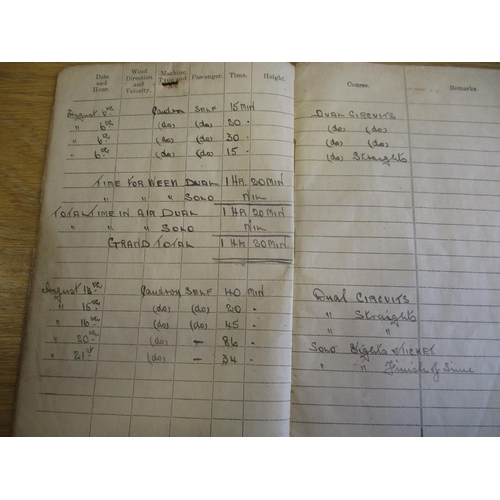 Date and Hour. Wind Direction and Velocity. Machine Type and Passenger. Time. Height. Course. Remarks.
August 6th Caudron SELF 15 MIN DUAL CIRCUITS
" 6th (do) (do) 20 " (do) (do)
" 6th (do) (do) 30 " (do) (do)
" 6th (do) (do) 15 " (do) Straights
TIME FOR WEEK DUAL 1 HR 20 MIN
" " " SOLO NIL
TOTAL TIME IN AIR DUAL 1 HR 20 MIN
" " " SOLO NIL
GRAND TOTAL 1 HR 20 MIN
August 13th Caudron SELF 40 MIN DUAL CIRCUITS
" 15th (do) (do) 20 " " Straights
" 16th (do) (do) 45 "
" 20th (do) — 26 " SOLO Eights TICKET
" 21st (do) — 34 " " " Finish of Time